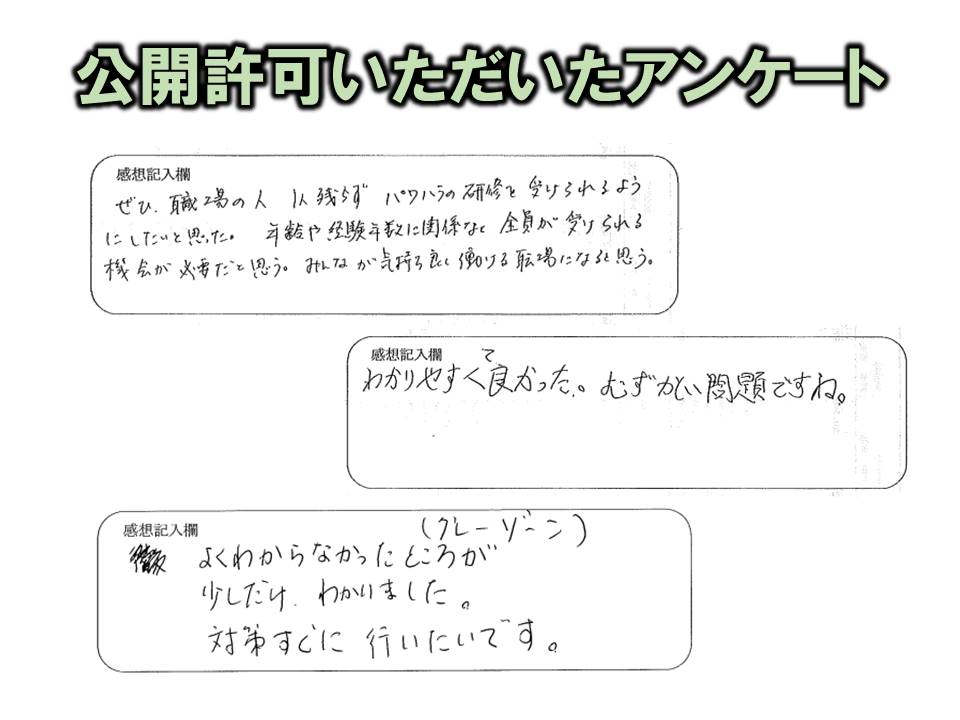 公開許可いただいたアンケート
感想記入欄
ぜひ、職場の人 1人残らず パワハラの研修を受けられるよう
にしたいと思った。 年齢や経験年数に関係なく全員が受けられる
機会が必要だと思う。みんなが気持ち良く働ける職場になると思う。
感想記入欄
わかりやすくて良かった。むずかしい問題ですね。
感想記入欄
(グレーゾーン)
よくわからなかったところが
少しだけ、わかりました。
対策すぐに行いたいです。